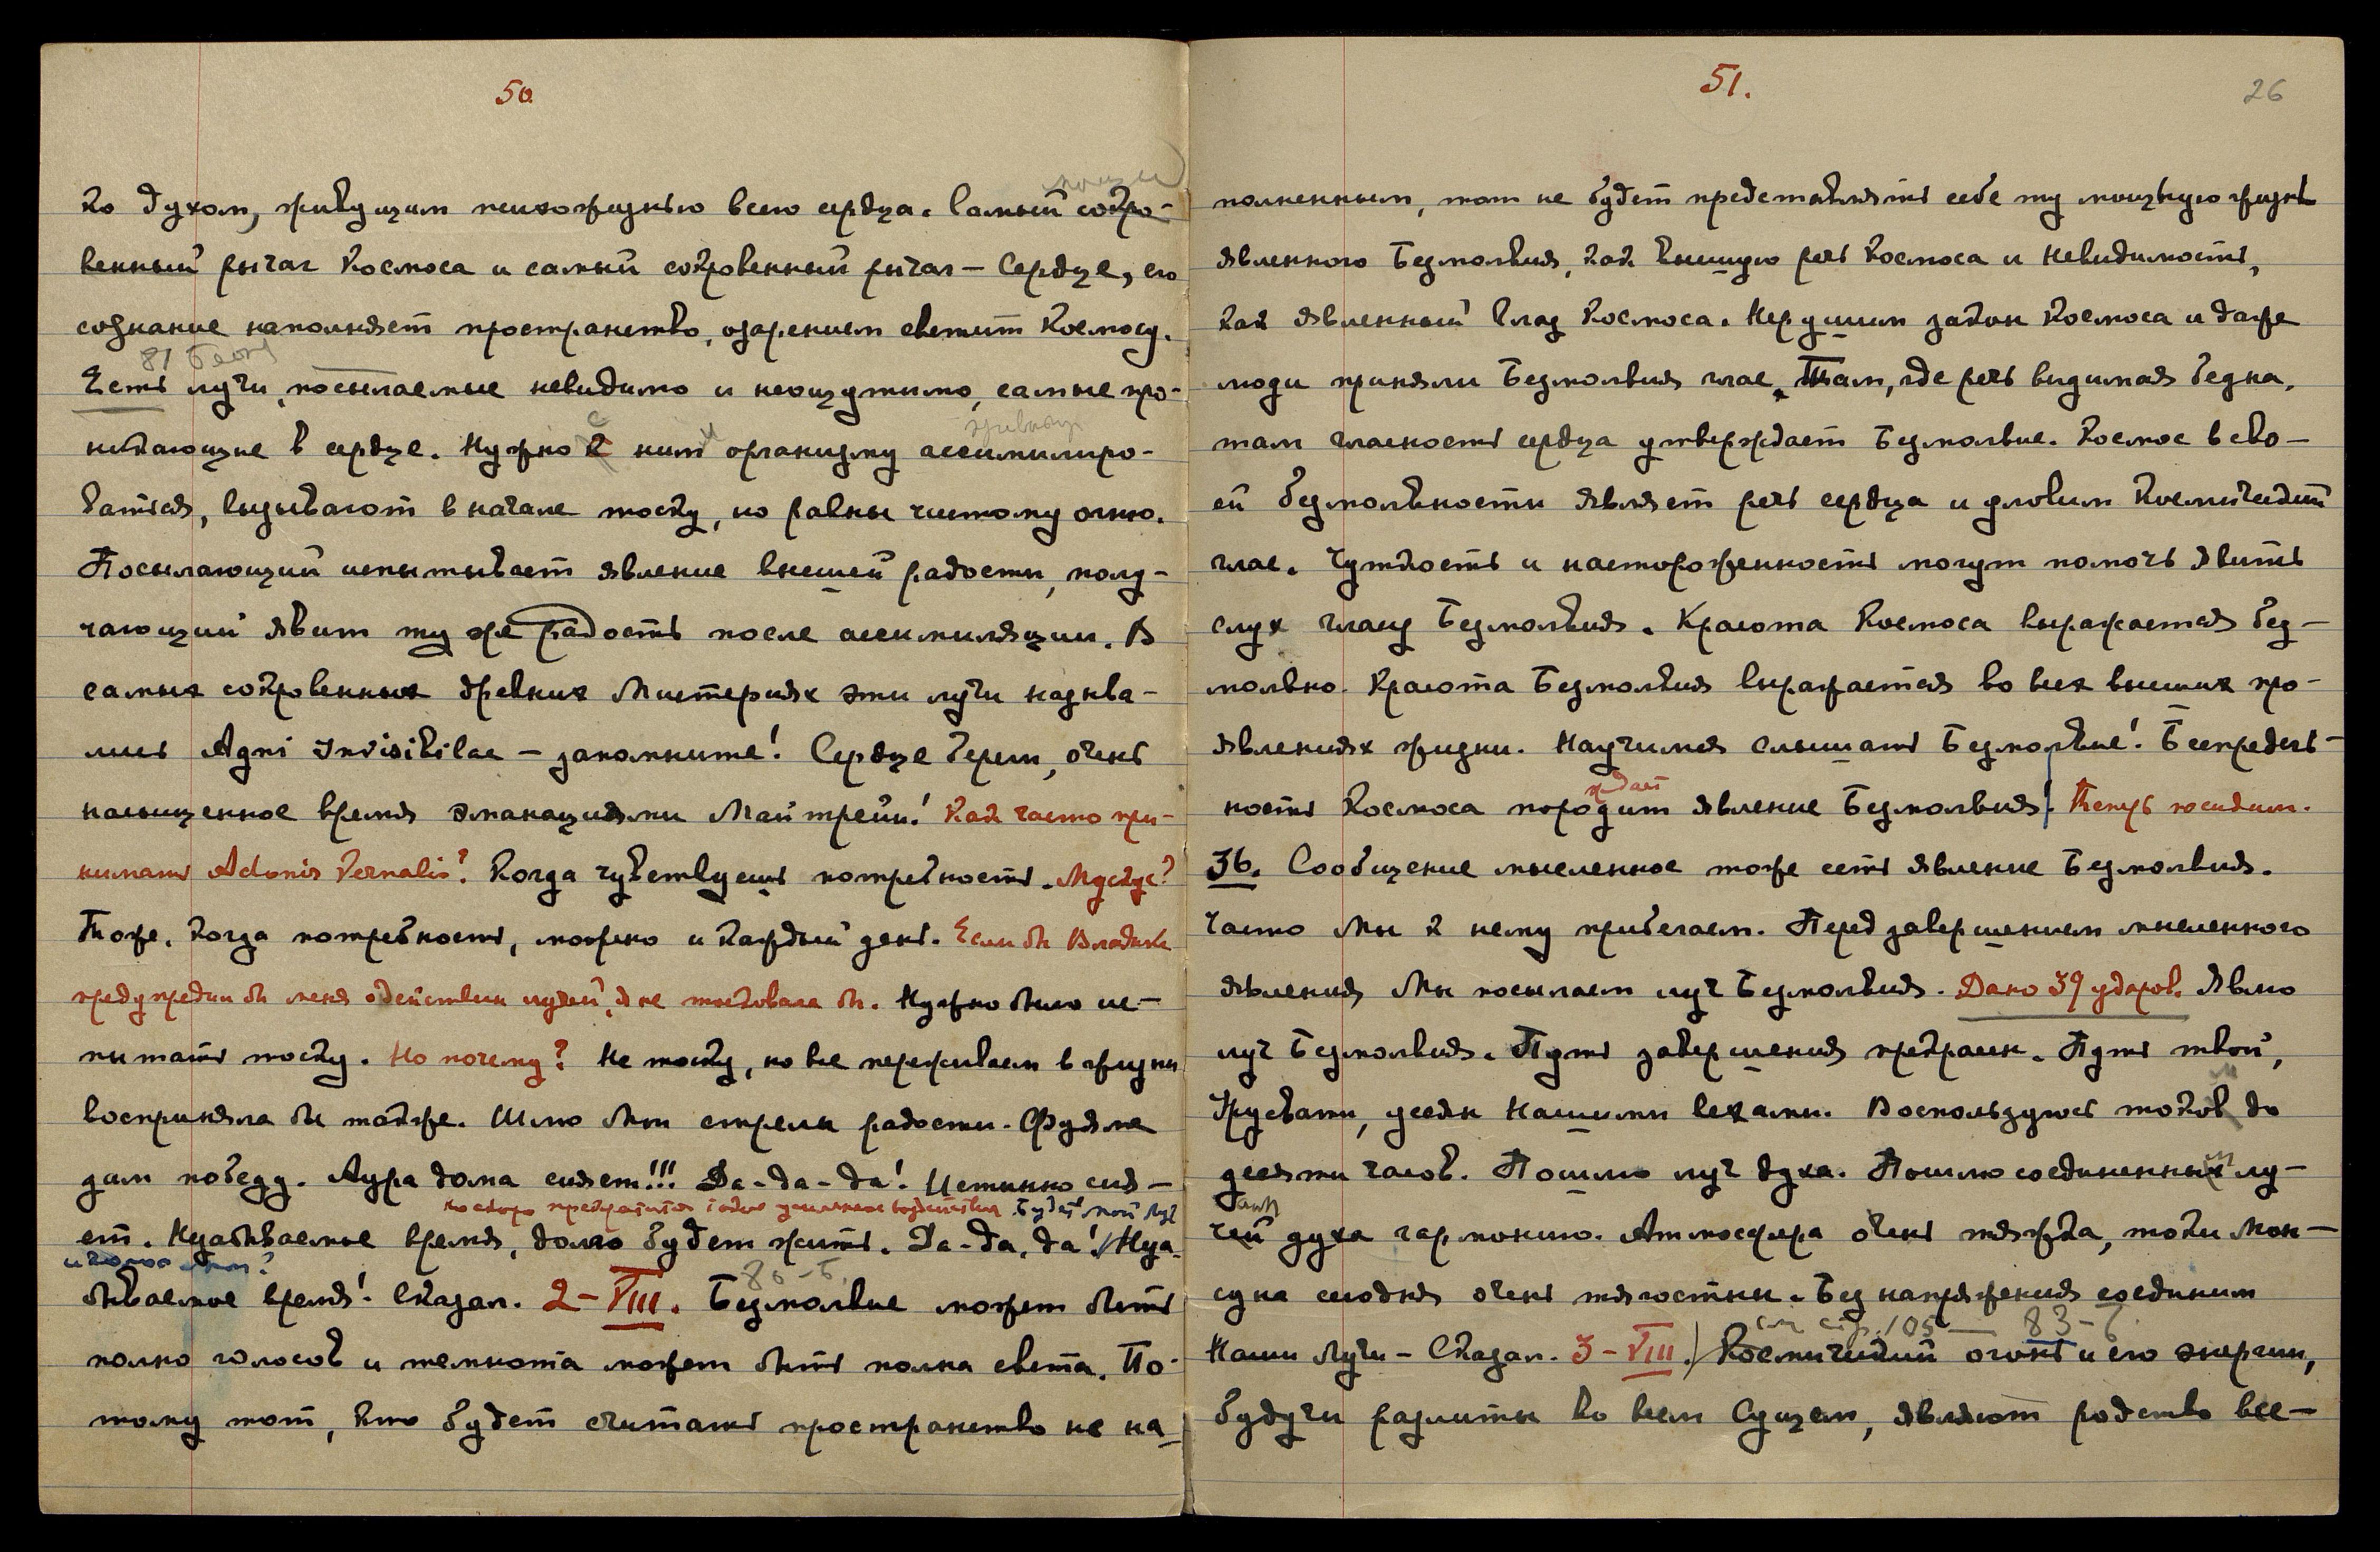 50
ко духом, живущим психожизнью всего сердца. Самый сокро-
венный рычаг Космоса и самый сокровенный рычаг — Сердце, его
сознание наполняет пространство, озарением светит Космосу.
81 Беспр
Есть лучи, посылаемые невидимо и неощутимо, самые про-
никающие в сердце. Нужно к ним организму ассимилиро-
ваться, вызывают в начале тоску, но равны чистому огню.
Посылающий испытывает явление высшей радости, полу-
чающий явит ту же радость после ассимиляции. В
самых сокровенных древних Мистериях эти лучи называ-
лись Agni Invisibilae — запомните! Сердце берем, очень
насыщенное время эманациями Майтрейи! Как часто при-
нимать Adonis Vernalis? Когда чувствуешь потребность. Мускус?
Тоже. Когда потребность, можно и каждый день. Если бы Владыка
предупредил бы меня о действии лучей, я не тосковала бы. Нужно было ис-
питать тоску. Но почему? Не тоску, но все переживаем в жизни
восприняла бы также. Шлю вам стрелы радости. Фуяме
дам победу. Аура дома сияет!!! Да-да-да! Истинно сия-
ет. Незабываемое время, долго будет жить. Да-да, да! Неза-
бываемое время! Сказал. 2-VIII. Безмолвие может быть
80-Б.
полно голосов и темнота может быть полна света. По-
тому тот, кто будет считать пространство не на-
51.
26
полненным, тот не будет представлять себе ту мощную жизнь
явленного Безмолвия, как высшую речь Космоса и Невидимость,
как явленный Глаз Космоса. Нерушим закон Космоса и даже
люди приняли Безмолвия глас. Там, где речь видимая бедна,
там гласность сердца утверждает Безмолвие. Космос в сво-
ей безмолвности являет речь сердца и уловим Космический
глас. Чуткость и настороженность могут помочь явить
слух гласу Безмолвия. Красота Космоса выражается без-
молвно. Красота Безмолвия выражается во всех высших про-
явлениях жизни. Научимся слышать Безмолвие! Беспредель-
ждает
ность Космоса породит явление Безмолвия! Теперь посидим.
36. Сообщение мысленное тоже есть явление Безмолвия.
Часто Мы к нему прибегаем. Перед завершением мысленного
явления Мы посылаем луч Безмолвия. Дано 39 ударов. Явлю
луч Безмолвия. Путь завершения прекрасен. Путь твой,
Урусвати, усеян Нашими вехами. Воспользуюсь токов до
десяти часов. Пошлю луч духа. Пошлю соединенных лу-
чей духа гармонию. Атмосфера очень тяжка, токи Мон-
суна сегодня очень тягостны. Без напряжения соединим
см стр. 105 — 83-Б.
Наши Лучи — Сказал. 3-VIII. Космический огонь и его энергии,
будучи разлиты во всем Сущем, являют родство все-